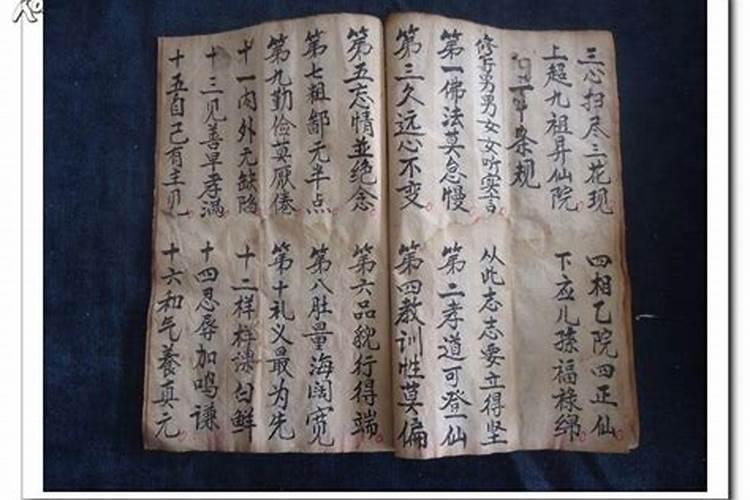 三心扫尽三花现 四相院四正仙
上超九祖昇仙院 下应儿孫福禄绵
条规
修行男男女女听实言 从此志志要立得坚
第一佛法莫怠慢 第二孝道可登仙
第三久远心不变 第四教训性莫偏
第五忘情並绝念 第六品貌行得端
第七粗鄙无半点 第八肚量海阔宽
第九勤俭莫厌倦 第十礼义最为先
十一内外无缺陷 十二样样白鲜
十三见善早孝满 十四忍辱加鸣谦
十五自己有主见 十六和气養真元